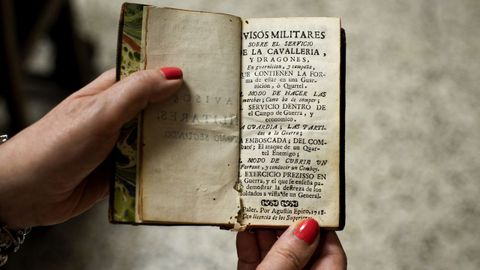 AVISO
MILITARES,
TOMO SEGUNDO
VISOS MILITARES
SOBRE EL SERVICIO
DE LA CAVALLERIA,
Y DRAGONES,
En guarnicion, y campaña,
QUE CONTIENEN LA FOR-
ma de estar en una Guar-
nicion, ò Quartel.
L MODO DE HACER LAS
marchas; Como ha de campar;
L SERVICIO DENTRO DE
el Campo de Guerra, y
economico.
A GUARDIA; LAS PARTI-
das à la Guerra;
A EMBOSCADA; DEL COM-
bate; El ataque de un Quar-
tel Enemigo;
L MODO DE CUBRIR UN
Forrage, y conducir un Comboy.
L EXERCICIO PREZISSO EN
Guerra, y el que se enseña pa-
demostrar la destreza de los
Soldados à vista de un General.
Paler. Por Agustin Epiro, 1718.
Con licencia de los Superiores